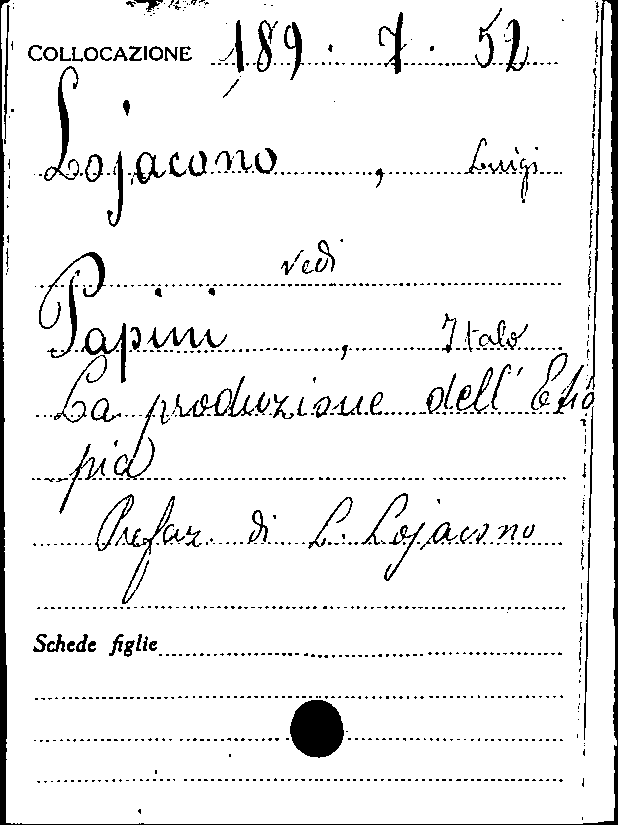 COLLOCAZIONE 189. 7. 52
Lojacono, Luigi
vedi
Papini, Italo
La produzione dell'Etio
pia
Prefaz. di L. Lojacono
Schede figlie